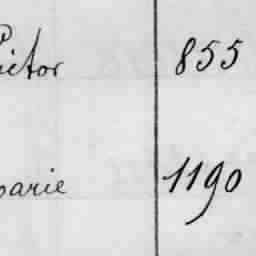 Victor 855
Marie 1190